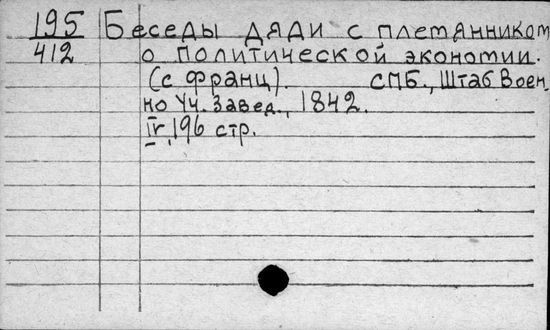 195 Беседы дяди с племянником
412 о политической экономии.
(с франц). СПБ., Штаб Воен.
но Уч. Завед., 1842.
IV, 196 стр.